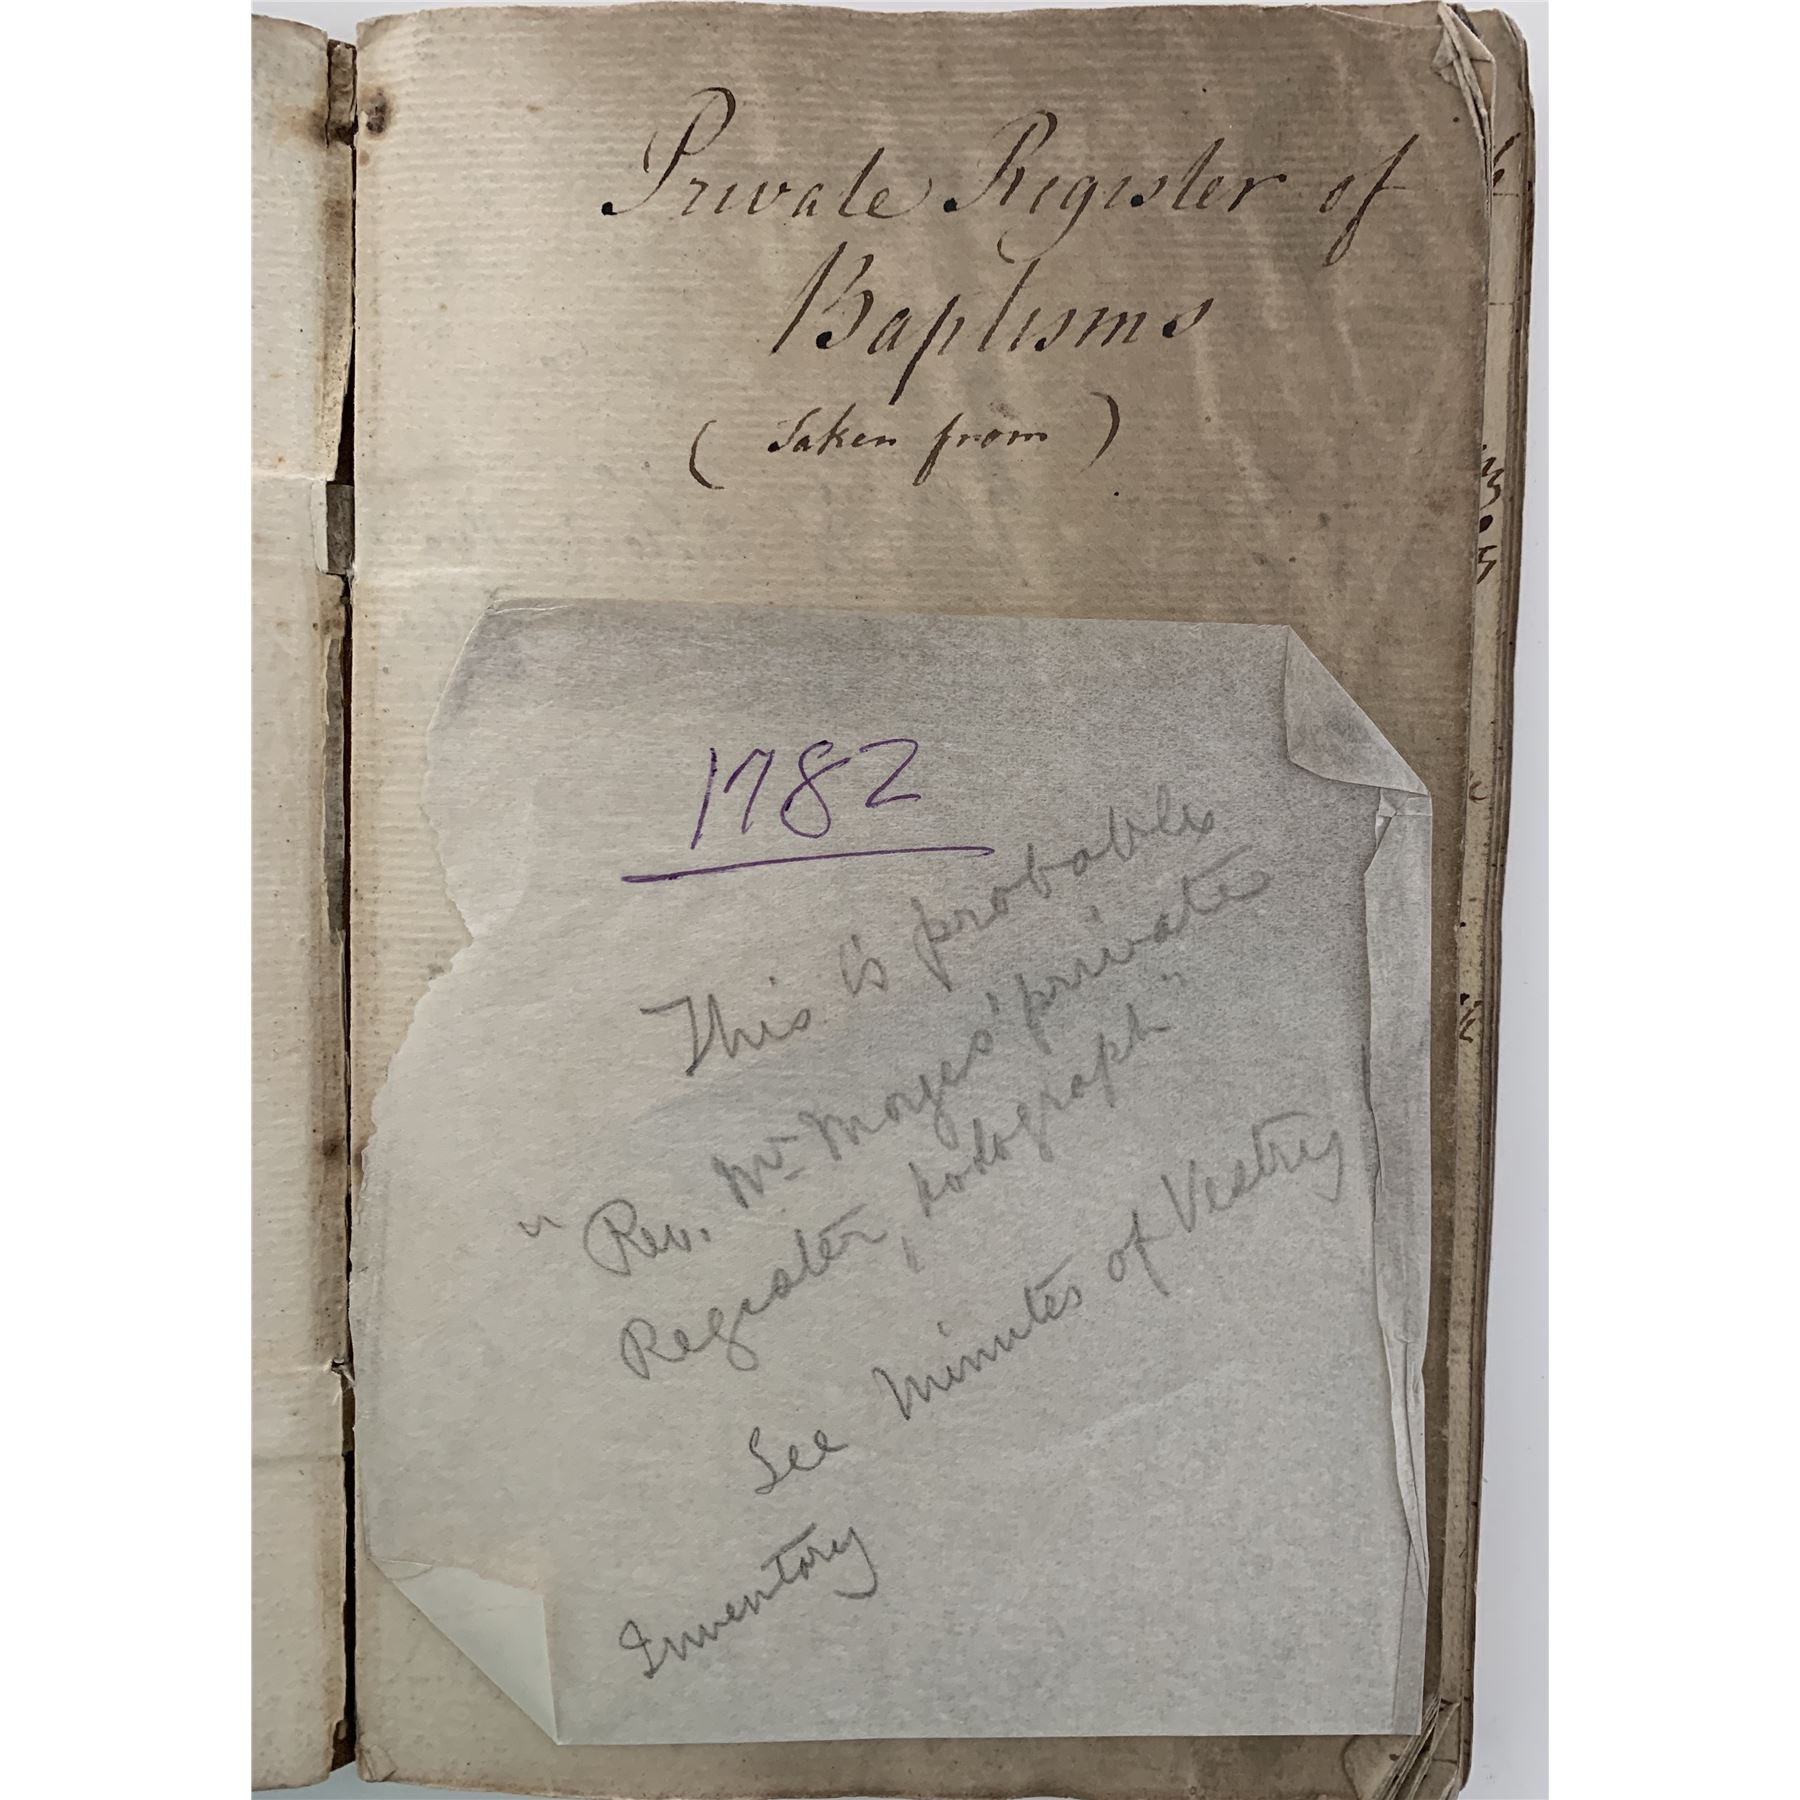 Private Register of
Baptisms
( Taken from )
1782
This is probably
" Rev. Mr Moyes' private
Register, hodograph"
See Minutes of Vestry
Inventory